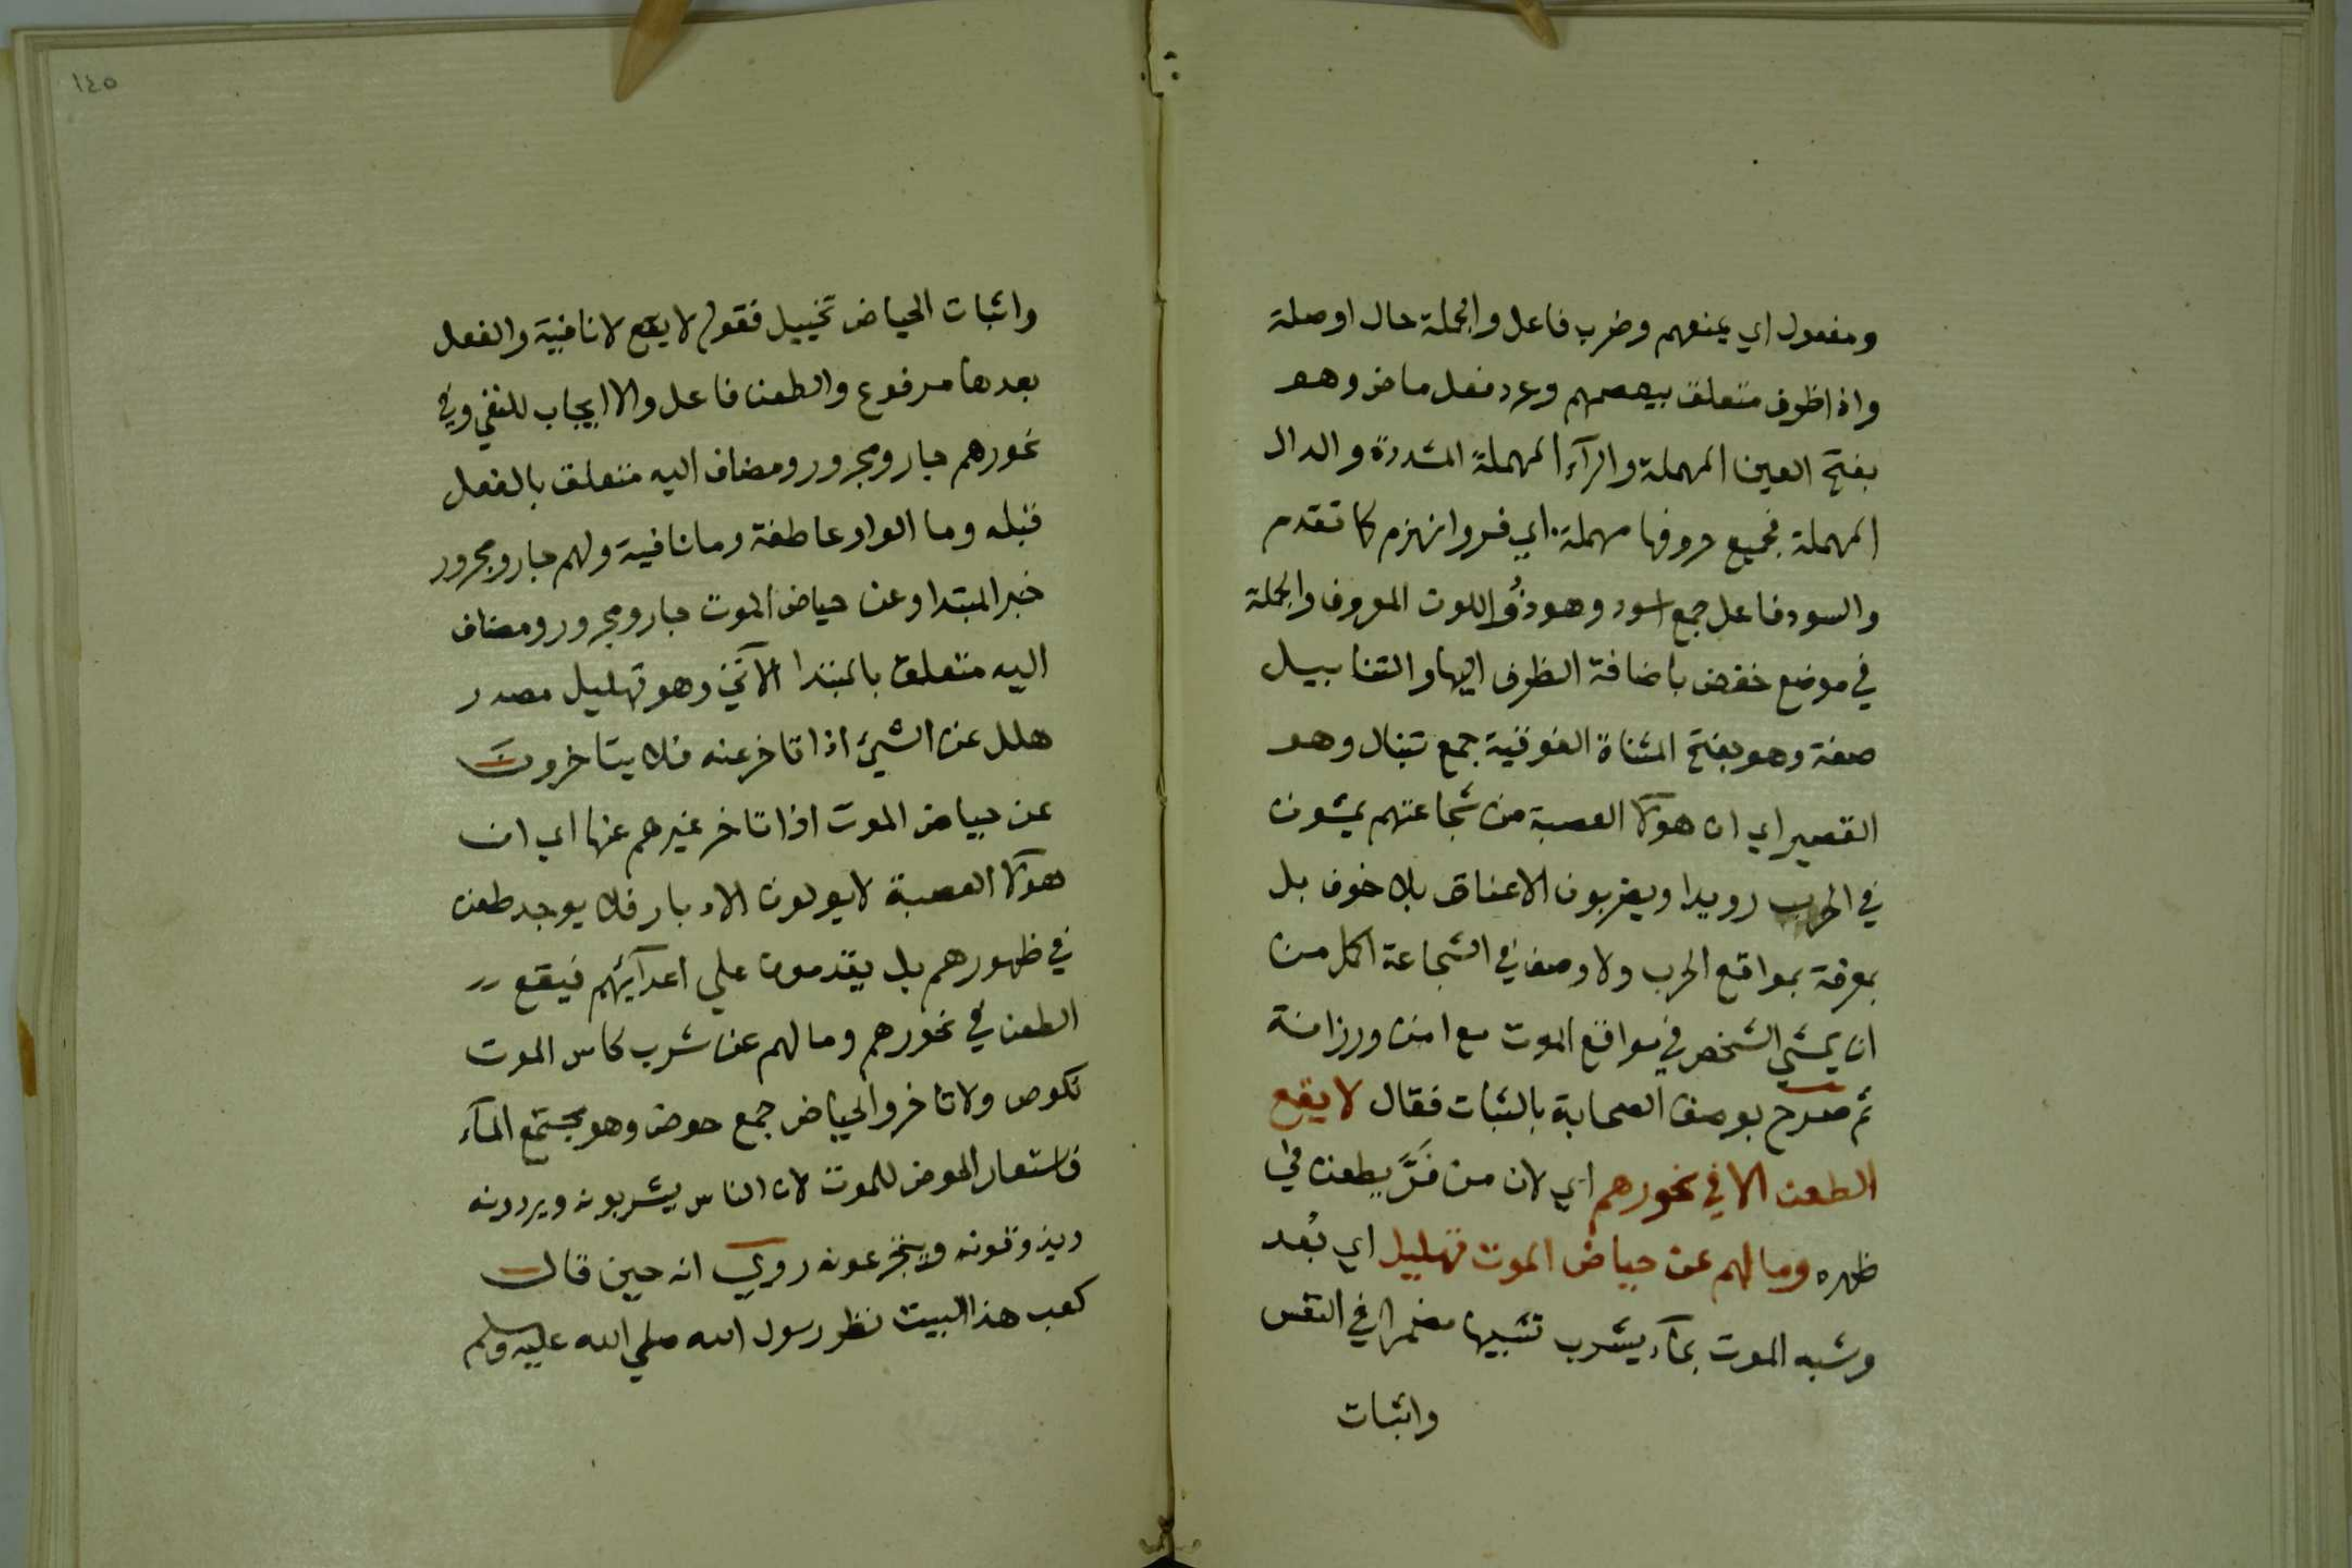 ومفعول اي يمنعهم وضرب فاعل والجملة حال اوصلة
واذا ظرف متعلق بيعصمهم وعرد فعل ماض وهو
بفتح العين المهملة والرآء المهملة المشددة والدال
المهملة فجميع حروفها مهملة اي فر وانهزم كما تقدم
والسود فاعل جمع اسود وهو ذُو اللون المعروف والجملة
في موضع خفض باضافة الظرف اليها والتنابيل
صفة وهو بفتح المثناة الفوقية جمع تنبال وهو
القصير اي ان هولآ العصبة من شجاعتهم يمشون
في الحرب رويدا ويضربون الاعناق بلا خوف بل
بمعرفة بمواقع الحرب ولا وصف في الشجاعة اكمل من
ان يمشي الشخص في مواقع الموت مع امن ورزانة
ثم صرح بوصف الصحابة بالثبات فقال لا يقع
الطعن الا في نحورهم اي لان من فَرَّ يطعن في
ظهره وما لهم عن حياض الموت تهليل اي بُعد
وشبه الموت بمآء يشرب تشبيها مضمرا في النفس
واثبات
١٤٥
واثبات الحياض تخييل فقوله لا يقع لا نافية والفعل
بعدها مرفوع والطعن فاعل والا ايجاب للنفي وفي
نحورهم جار ومجرور ومضاف اليه متعلق بالفعل
قبله وما الواو عاطفة وما نافية ولهم جار ومجرور
خبر المبتدا وعن حياض الموت جار ومجرور ومضاف
اليه متعلق بالمبتدا الآتي وهو تهليل مصدر
هلل عن الشيئ اذا تاخر عنه فلا يتاخرون
عن حياض الموت اذا تاخر غيرهم عنها اي ان
هولآ العصبة لا يولون الادبار فلا يوجد طعن
في ظهورهم بل يقدمون علي اعدآئهم فيقع
الطعن في نحورهم وما لهم عن شرب كاس الموت
نكوص ولا تاخر والحياض جمع حوض وهو مجتمع المآء
فاستعار الحوض للموت لان الناس يشربونه ويردونه
ويذوقونه ويتجرعونه روي انه حين قال
كعب هذا البيت نظر رسول الله صلي الله عليه وسلم